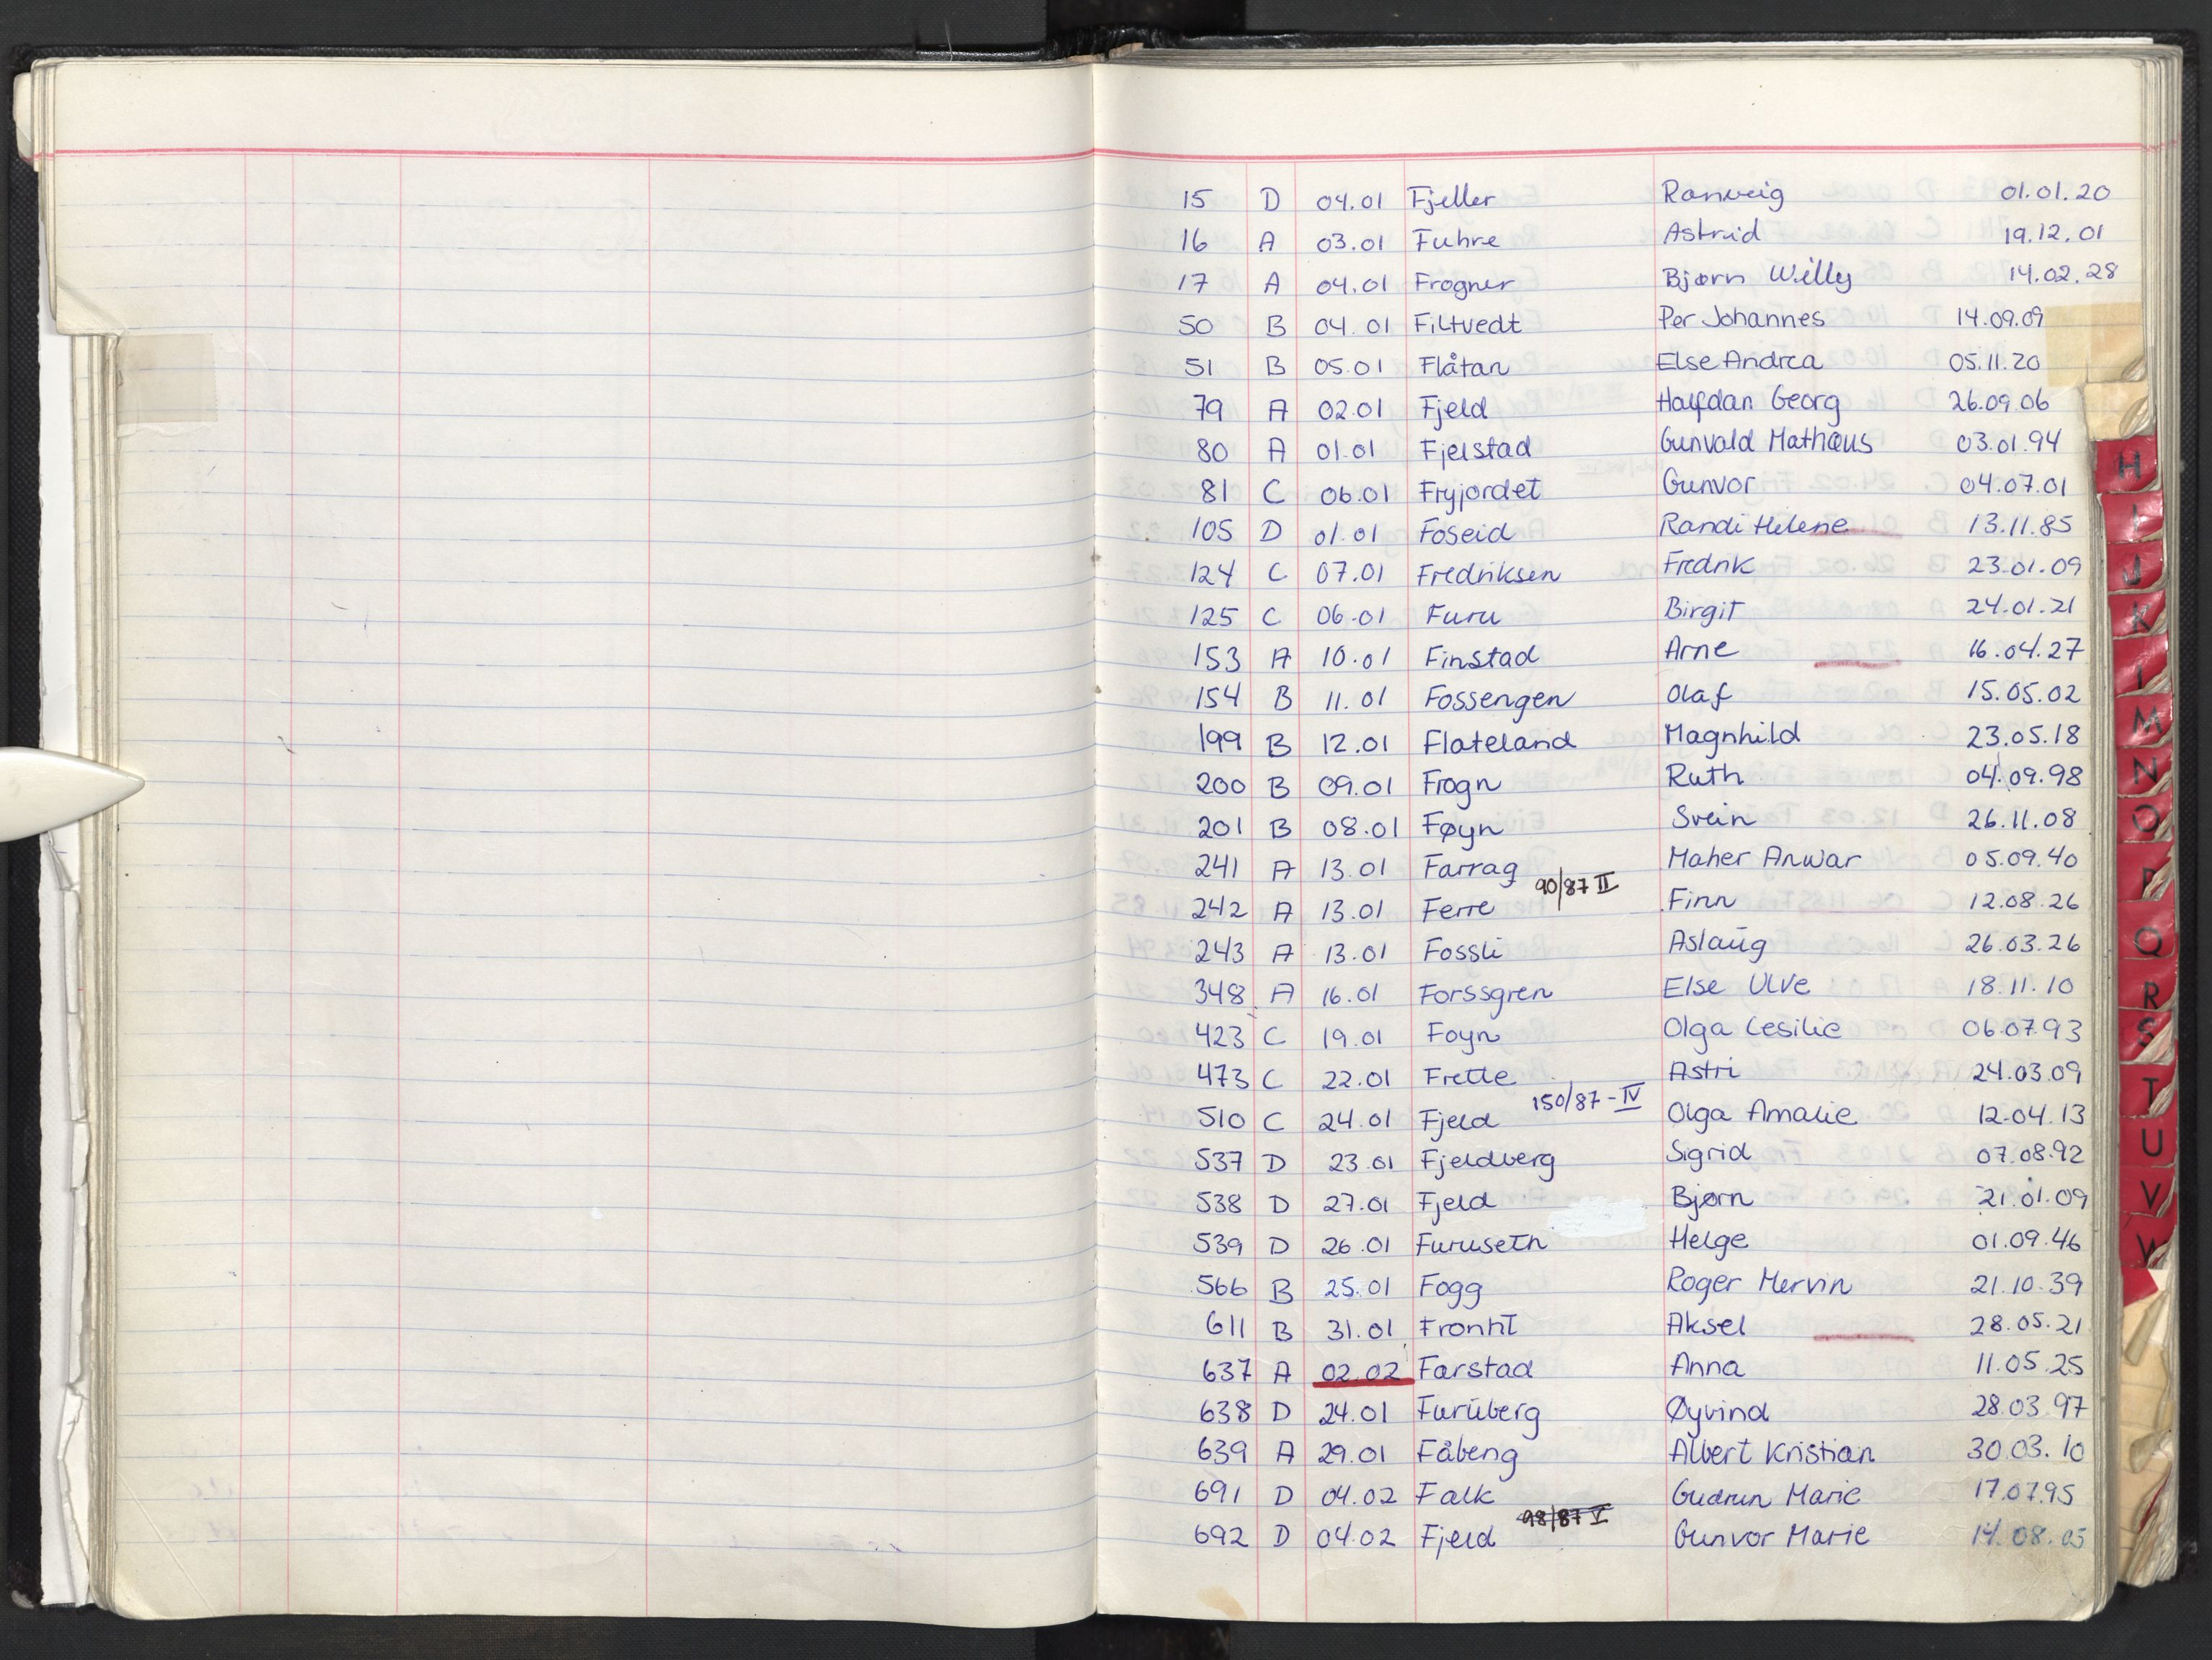 15 D 04.01 Fjeller Ranveig 01.01.20
16 A 03.01 Fuhre Astrid 19.12.01
17 A 04.01 Frogner Bjørn Willy 14.02.28
50 B 04.01 Filtvedt Per Johannes 14.09.09
51 B 05.01 Flåtan Else Andrea 05.11.20
79 A 02.01 Fjeld Halfdan Georg 26.09.06
80 A 01.01 Fjelstad Gunvald Mathæus 03.01.94
81 C 06.01 Fryjordet Gunvor 04.07.01
105 D 01.01 Foseid Randi Helene 13.11.85
124 C 07.01 Fredriksen Fredrik 23.01.09
125 C 06.01 Furu Birgit 24.01.21
153 A 10.01 Finstad Arne 16.04.27
154 B 11.01 Fossengen Olaf 15.05.02
199 B 12.01 Flateland Magnhild 23.05.18
200 B 09.01 Frogn Ruth 04.09.98
201 B 08.01 Føyn Svein 26.11.08
241 A 13.01 Farrag Maher Anwar 05.09.40
90/87 II
242 A 13.01 Ferre Finn 12.08.26
243 A 13.01 Fossli Aslaug 26.03.26
348 A 16.01 Forssgren Else Ulve 18.11.10
423 C 19.01 Foyn Olga Cesilie 06.07.93
473 C 22.01 Frette Astri 24.03.09
150/87-IV
510 C 24.01 Fjeld Olga Amalie 12.04.13
537 D 23.01 Fjeldberg Sigrid 07.08.92
538 D 27.01 Fjeld Bjørn 21.01.09
539 D 26.01 Furuseth Helge 01.09.46
566 B 25.01 Fogg Roger Mervin 21.10.39
611 B 31.01 Fronht Aksel 28.05.21
637 A 02.02 Farstad Anna 11.05.25
638 D 24.01 Furuberg Øyvind 28.03.97
639 A 29.01 Fåbeng Albert Kristian 30.03.10
691 D 04.02 Falk Gudrun Marie 17.07.95
98/87 V
692 D 04.02 Fjeld Gunvor Marie 14.08.05
H
I
J
K
M
N
O
P
Q
R
S
T
U
V
W